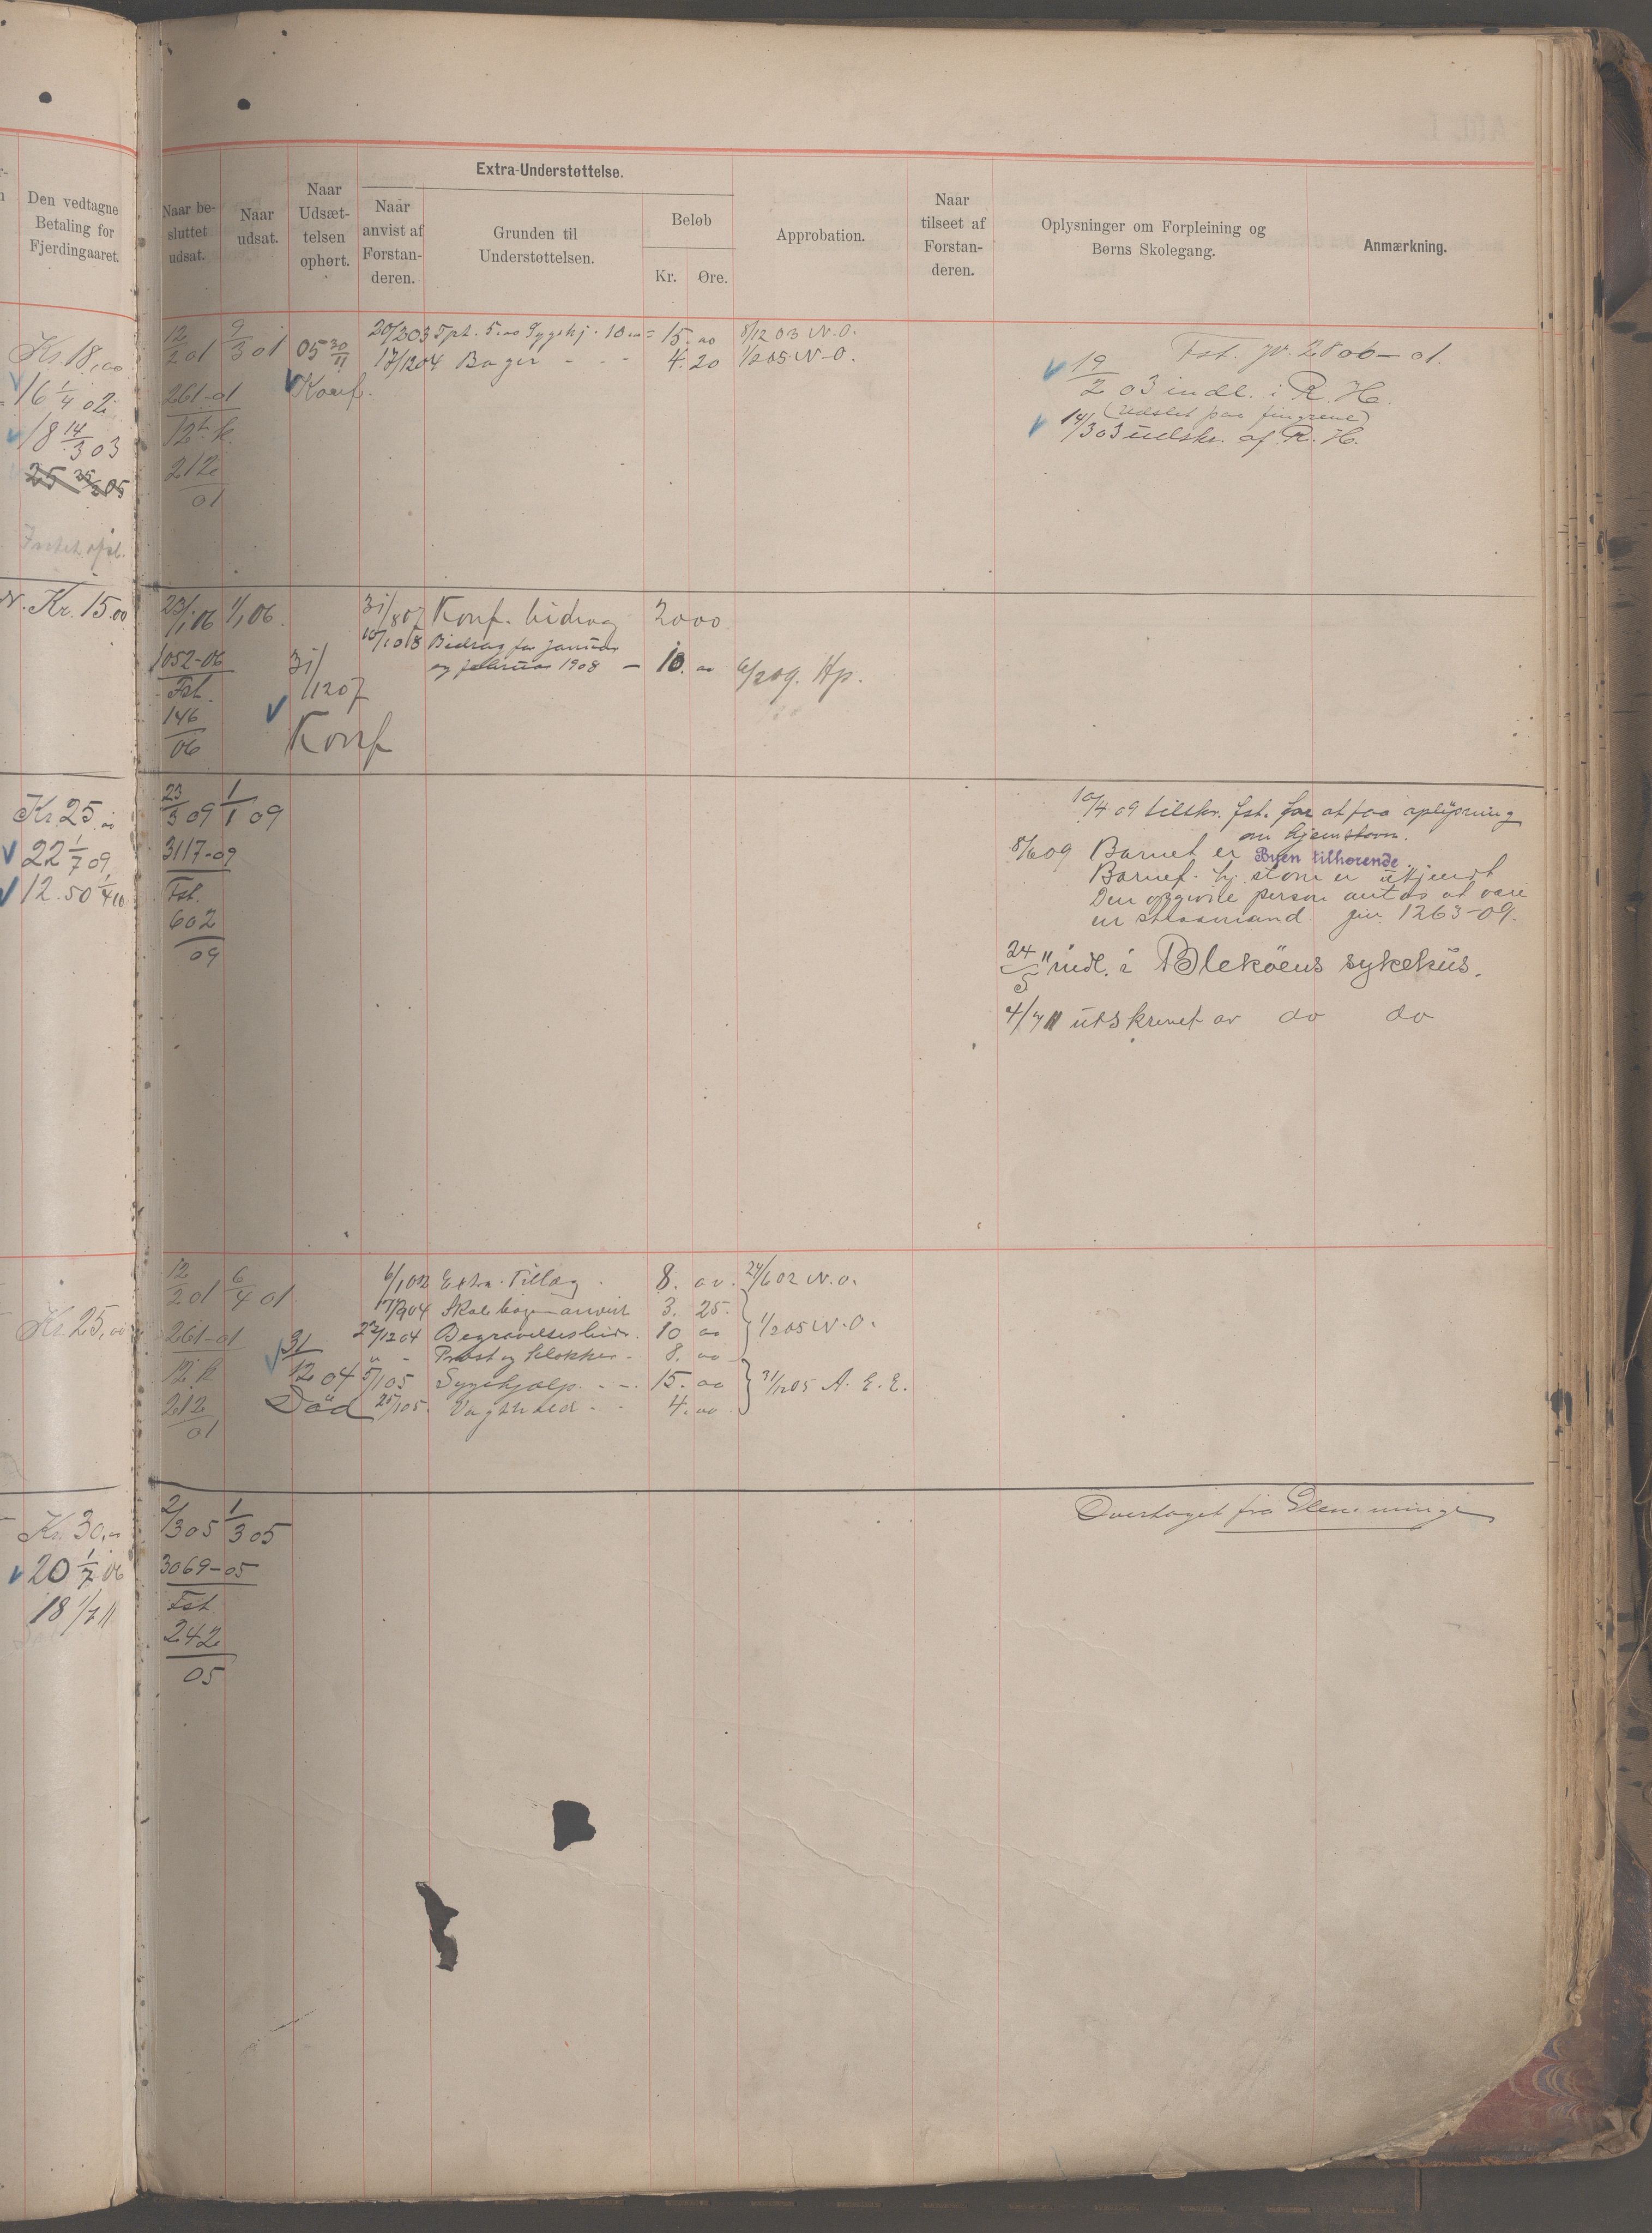 Den vedtagne
Betaling for
Fjerdingaaret.
Kr. 18,00
16 1/4 02
18 14/3 03
25 05
Kr. 15.00
Kr. 25.
22 1/7 09
12.50 1/4 10
Kr. 25,00
Kr. 30,
20 1/7 06
18 1/7 11
Naar be-
sluttet
udsat.
Naar
udsat.
Naar
Udsæt-
telsen
ophørt.
Extra-Understøttelse.
Naar
anvist af
Forstan-
deren.
Grunden til
Understøttelsen.
Beløb
Kr.
Øre.
Approbation.
Naar
tilseet af
Forstan-
deren.
Oplysninger om Forpleining og
Børns Skolegang.
Anmærkning.
12/2 01 9/3 01 05 30/11 20/2 03 Tpt. 5.00 Sygehj. 10.00 = 15.00 8/12 03 N.O.
17/12 04 Bøger - - - 4.20 1/2 05 N.O.
261-01 Konf.
212
01
Fst. jr. 2806-01.
19/2 03 indl. i R.H.
(Udslet paa fingrene)
14/3 03 udskr. af R.H.
23/1 06 1/1 06. 31/8 07 Konf. bidrag 20 00
10/10 8 Bidrag for januar
og februar 1908 - 10.00 6/2 09. Hp.
1052-06 31/12 07
Fst.
146
06
Konf
23/3 09 1/1 09
3117-09
Fst.
602
09
10/4 09 tilskr. fst. for at faa oplysning
om hjemstavn.
8/6 09 Barnet er Byen tilhørende.
Barnef. hj. stavn er ukjendt
Den opgivne person antas at være
en straamand. jnr. 1263-09.
24/5 11 indl. i Blekøens sykehus.
4/7 11 utskrevet av do do
12/2 01 6/4 01 6/1 02 Extra Tillæg 8.00 24/6 02 N.O.
17/9 04 Skolebøger anvist 3.25.
261-01 31/12 04 22/12 04 Begravelsesbidr. 10 00 1/2 05 N.O.
" - Præst og klokker - 8.00
12 k 5/1 05 Sygehjælp. - - 15.00 31/12 05 A.E.E.
212
01
Död 25/1 05. Vaghold - - 4.00
2/3 05 1/3 05
3069-05
Fst.
242
05
Overtaget fra Glemminge